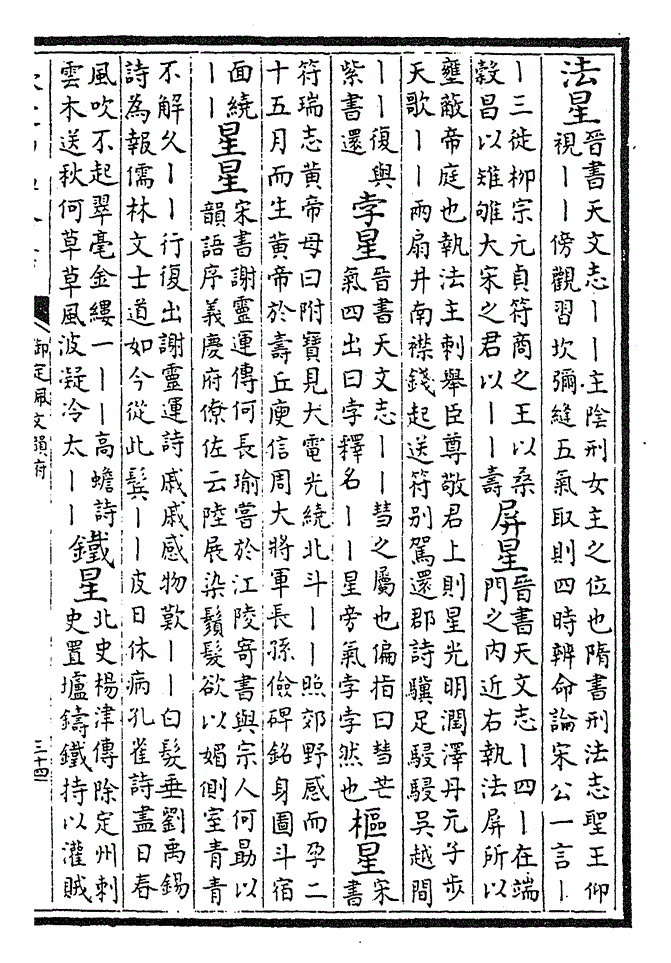 法星晉書天文志丨丨主陰刑女主之位也隋書刑法志聖王仰
視丨丨傍觀習坎彌縫五氣取則四時辨命論宋公一言丨
丨三徙柳宗元貞符商之王以桑
穀昌以雉雊大宋之君以丨丨壽屏星晉書天文志丨四丨在端
門之內近右執法屏所以
壅蔽帝庭也執法主刺舉臣尊敬君上則星光明潤澤丹元子步
天歌丨丨兩扇井南襟錢起送符别駕還郡詩驥足駸駸吳越間
丨丨復與
紫書還孛星晉書天文志丨丨彗之屬也偏指曰彗芒
氣四出曰孛釋名丨丨星旁氣孛孛然也樞星宋
書
符瑞志黄帝母曰附寶見大電光繞北斗丨丨照郊野感而孕二
十五月而生黄帝於壽丘庾信周大將軍長孫儉碑銘身圖斗宿
面繞
丨丨星星宋書謝靈運傳何長瑜嘗於江陵寄書與宗人何勗以
韻語序義慶府僚佐云陸展染鬚髮欲以媚側室青青
不解久丨丨行復出謝靈運詩戚戚感物歎丨丨白髮垂劉禹錫
詩為報儒林文士道如今從此鬂丨丨皮日休病孔雀詩盡日春
風吹不起翠毫金縷一丨丨高蟾詩
雲木送秋何草草風波凝冷太丨丨鐵星北史楊津傳除定州刺
史置壚鑄鐵持以灌賊
御定佩文韻府
三十四